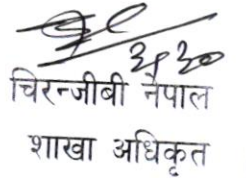 चिरन्जीबी नेपाल
शाखा अधिकृत